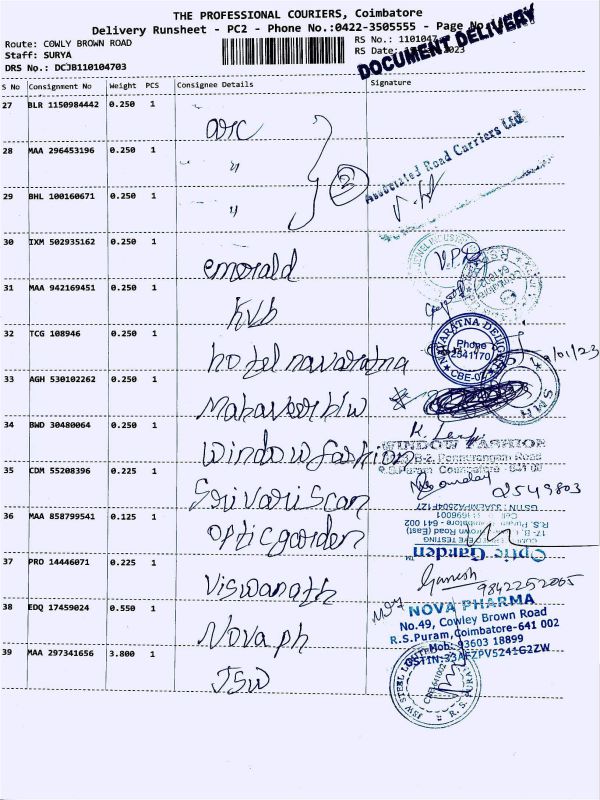 THE PROFESSIONAL COURIERS, Coimbatore
Delivery Runsheet - PC2 - Phone No.:0422-3505555 - Page No
DOCUMENT DELIVERY
Route: COWLY BROWN ROAD
RS No.: 1101047
Staff: SURYA
RS Date: 2023
DRS No.: DCJB110104703
S No Consignment No Weight PCS Consignee Details Signature
27 BLR 1150984442 0.250 1 arc
28 MAA 296453196 0.250 1 "
29 BHL 100160671 0.250 1 "
2
Associated Road Carriers Ltd
30 IXM 502935162 0.250 1 emerald
31 MAA 942169451 0.250 1 KVB
32 TCG 108946 0.250 1 hotel navaratna
NAVARATNA
Phone
2541170
CBE-02
/01/23
33 AGH 530102262 0.250 1 Mahaveer blw
SMH
34 BWD 30480064 0.250 1 Window fashion
WINDOW FASHION
B-2, Ponnurangam Road
R.S.Puram Coimbatore
35 CDM 55208396 0.225 1 Srivari Scan
2549803
36 MAA 858799541 0.125 1 opticgarden
R.S. Puram Coimbatore - 641 002
Optic Garden
37 PRO 14446071 0.225 1 Viswanath
Ganesh
9842252065
38 EDQ 17459024 0.550 1 Nova ph
NOVA PHARMA
No.49, Cowley Brown Road
R.S.Puram, Coimbatore-641 002
Mob: 93603 18899
GSTIN:33AFZPV5241G2ZW
39 MAA 297341656 3.800 1 JSW
JSW STEEL LIMITED
R. S. PURAM